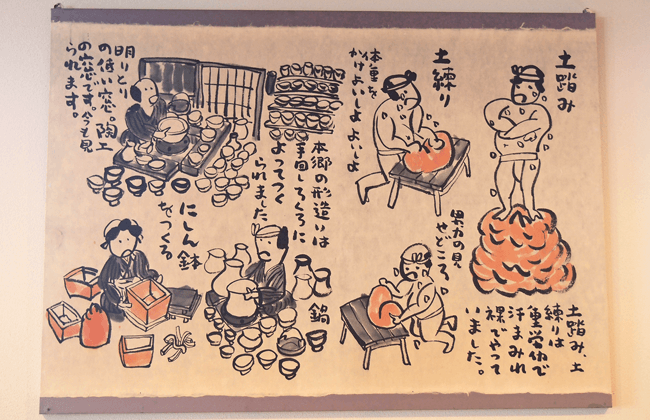 土踏み
土踏み、土
練りは
重労働で
汗まみれ
裸でやって
いました。
土練り
体重を
かけよいしょよいしょ
男力の見
せどころ。
本郷の形造りは
手回しろくろに
よってつく
られました
鍋
明りとり
の低い窓。陶工
の窓です。今も見
られます。
にしん鉢
をつくる